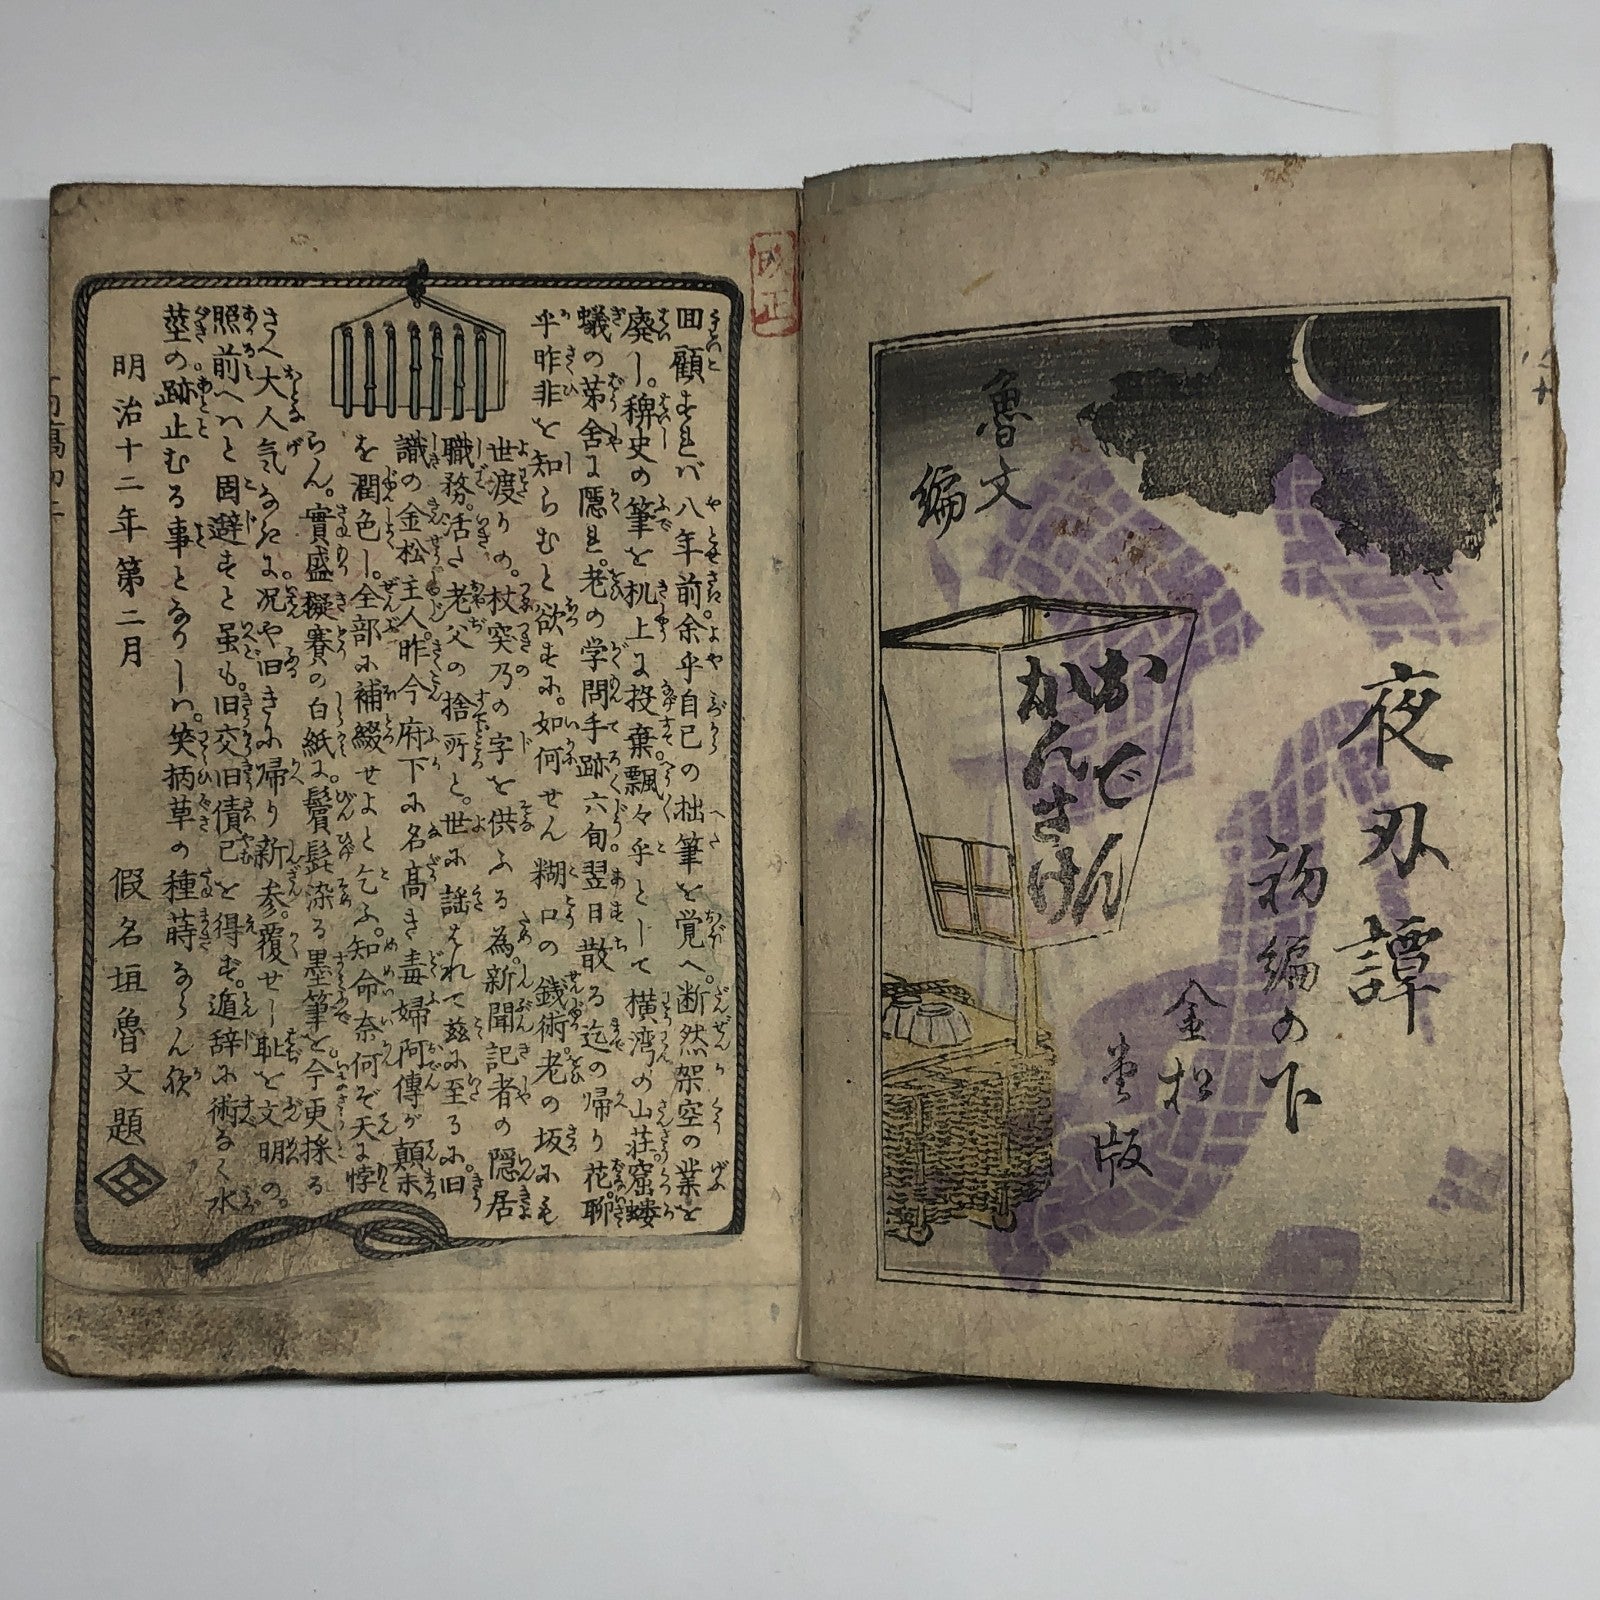 夜刃譚
初編の下
金松
堂版
おでん
かんざけ
魯文
編
改正
回顧すれバ八年前余乎自己の拙筆を覚へ。断然架空の業を
廃し。稗史の筆を机上に投棄。飄々乎として横湾の山荘。窟蟻
蟻の茅舎に隠れ。老の学問手跡六旬翌日散る迄の帰り花。聊
乎昨非を知らむと欲すに。如何せん糊口の銭術。老の坂にも
世渡りの。杖突乃の字を供ふる為。新聞記者の隠居
職務。活た老父の捨所と。世に謡はれて茲に至るに。旧
識の金松主人。昨今府下に名高き毒婦阿傳が顛末
を潤色し。全部に補綴せよと乞ふ。知命奈何ぞ天に悖
らん。實盛擬賽の白紙に鬢髭染る墨筆を今更採る
さへ大人気なきに况や旧きに帰り新参。覆せし耻を文明の。
照前へハと固避すと虽も。旧交旧債已を得ず。遁辞に術なく水
莖の跡止むる事となりしハ。笑柄草の種蒔ならん欤
明治十二年第二月
假名垣魯文題